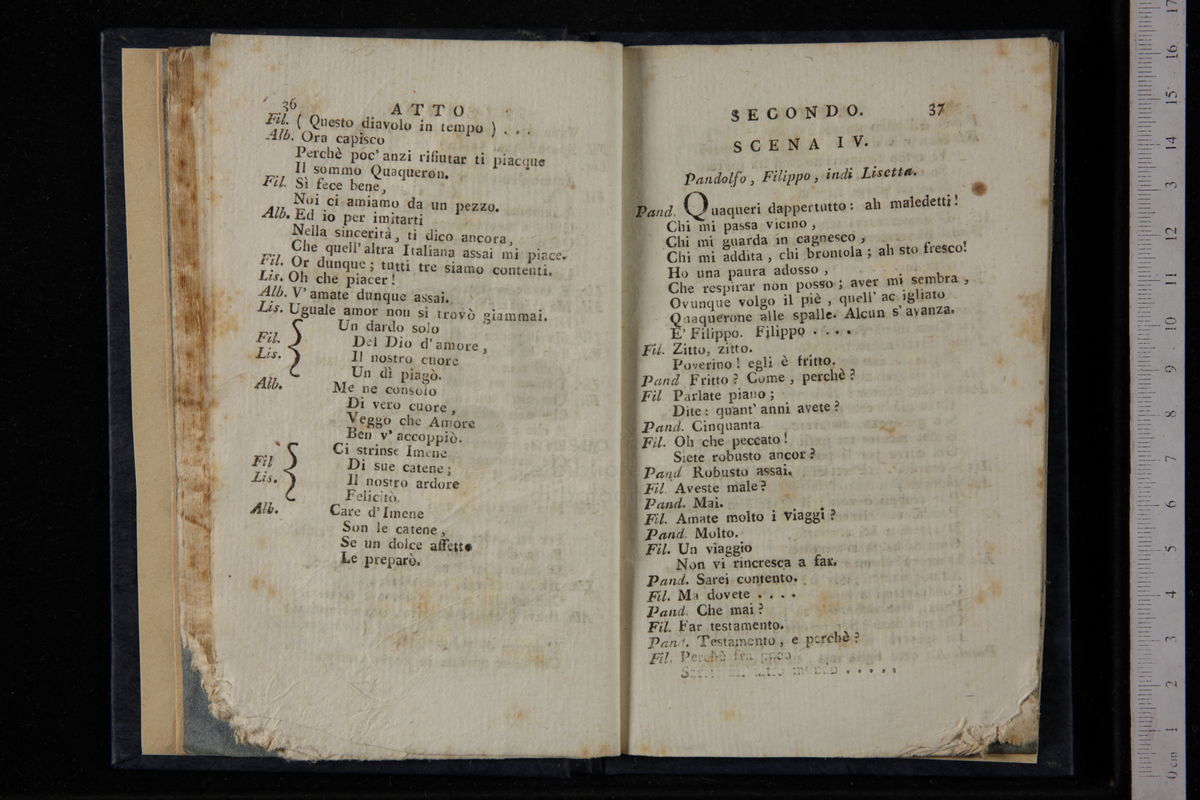 36 ATTO
Fil. ( Questo diavolo in tempo ) . . .
Alb. Ora capisco
Perchè poc' anzi rifiutar ti piacque
Il sommo Quaqueron.
Fil. Sì fece bene,
Noi ci amiamo da un pezzo.
Alb. Ed io per imitarti
Nella sincerità, ti dico ancora,
Che quell' altra Italiana assai mi piace.
Fil. Or dunque ; tutti tre siamo contenti.
Lis. Oh che piacer !
Alb. V' amate dunque assai.
Lis. Uguale amor non si trovò giammai.
Un dardo solo
Fil. Del Dio d' amore,
Lis. Il nostro cuore
Un dì piagò.
Alb. Me ne consolo
Di vero cuore,
Veggo che Amore
Ben v' accoppiò.
Ci strinse Imene
Fil Di sue catene ;
Lis. Il nostro ardore
Felicitò.
Alb. Care d' Imene
Son le catene,
Se un dolce affetto
Le preparò.
SECONDO. 37
SCENA IV.
Pandolfo, Filippo, indi Lisetta.
Pand. Quaqueri dappertutto : ah maledetti !
Chi mi passa vicino,
Chi mi guarda in cagnesco,
Chi mi addita, chi brontola ; ah sto fresco!
Ho una paura adosso,
Che respirar non posso ; aver mi sembra,
Ovunque volgo il piè, quell' ac igliato
Quaquerone alle spalle. Alcun s' avanza.
E' Filippo. Filippo . . . .
Fil. Zitto, zitto.
Poverino ! egli è fritto.
Pand Fritto ? Come, perchè ?
Fil Parlate piano ;
Dite : quant' anni avete ?
Pand. Cinquanta
Fil. Oh che peccato !
Siete robusto ancor ?
Pand Robusto assai.
Fil. Aveste male ?
Pand. Mai.
Fil. Amate molto i viaggi ?
Pand. Molto.
Fil. Un viaggio
Non vi rincresca a far.
Pand. Sarei contento.
Fil. Ma dovete . . . .
Pand. Che mai ?
Fil. Far testamento.
Pand. Testamento, e perchè ?
Fil. Perchè fra poco
altro mondo . . . . .
0 cm 1 2 3 4 5 6 7 8 9 10 11 12 13 14 15 16 17